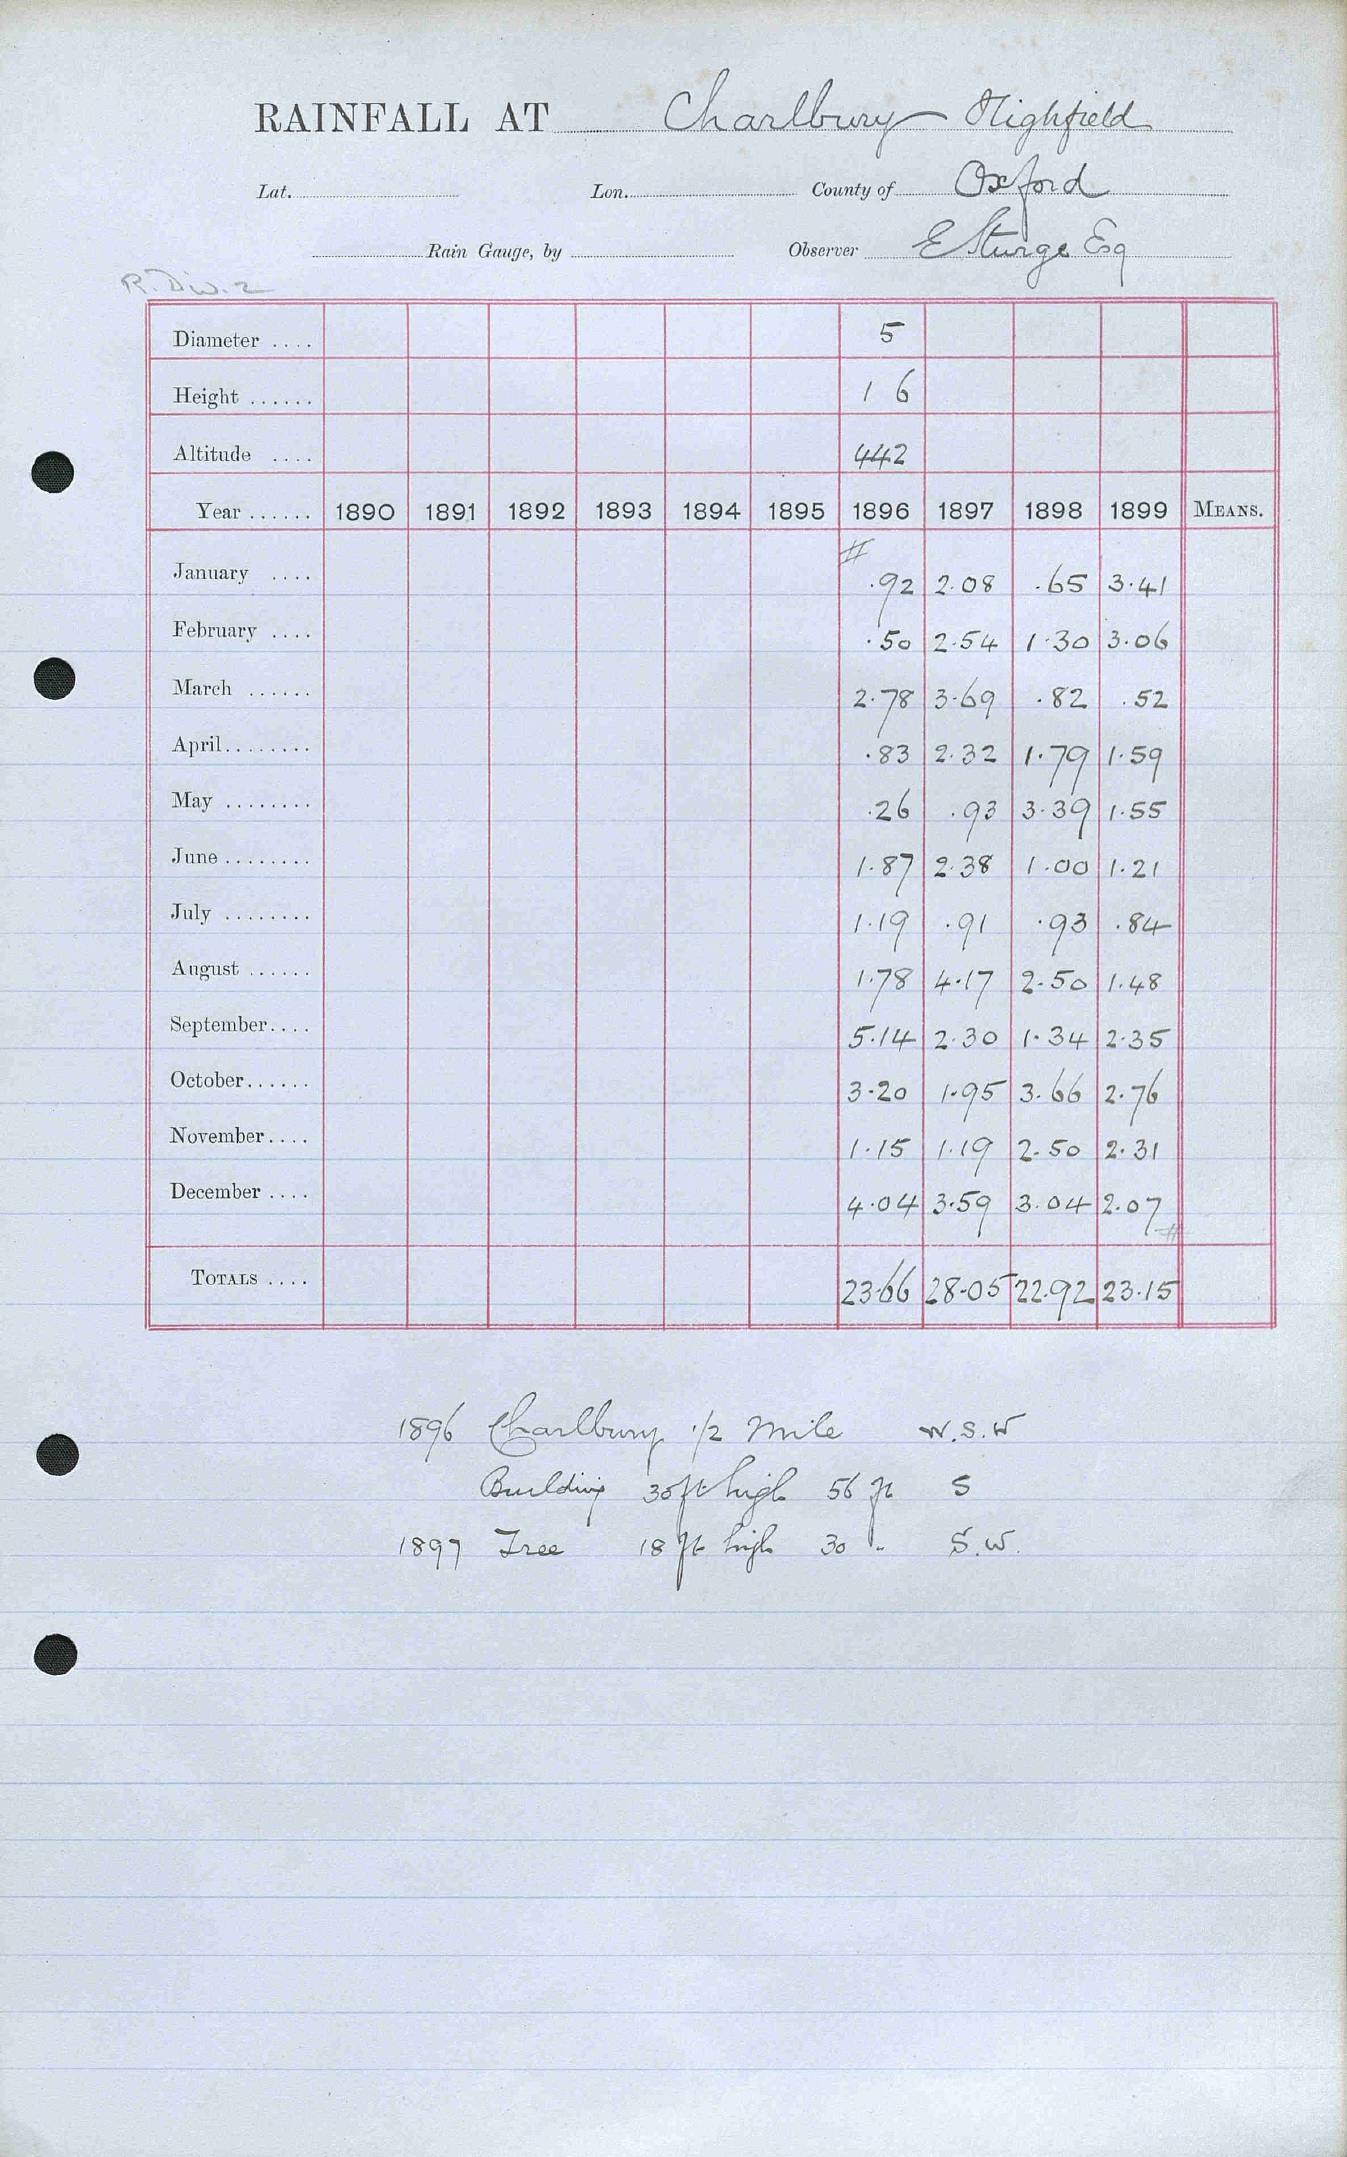 RAINFALL AT Charlbury Highfield
Lat. Lon. County of Oxford
Rain Gauge, by Observer E Sturge Esq
R. Div. 2
Diameter .... 5
Height ...... 1 6
Altitude .... 442
Year ...... 1890 1891 1892 1893 1894 1895 1896 1897 1898 1899 MEANS.
#
January .... .92 2.08 .65 3.41
February .... .50 2.54 1.30 3.06
March ...... 2.78 3.69 .82 .52
April........ .83 2.32 1.79 1.59
May ........ .26 .93 3.39 1.55
June ........ 1.87 2.38 1.00 1.21
July ........ 1.19 .91 .93 .84
August ...... 1.78 4.17 2.50 1.48
September.... 5.14 2.30 1.34 2.35
October...... 3.20 1.95 3.66 2.76
November.... 1.15 1.19 2.50 2.31
December .... 4.04 3.59 3.04 2.07
#
TOTALS .... 23.66 28.05 22.92 23.15
1896 Charlbury 1/2 Mile W.S.W
Building 30 ft high 56 ft S
1897 Tree 18 ft high 30 " S.W.